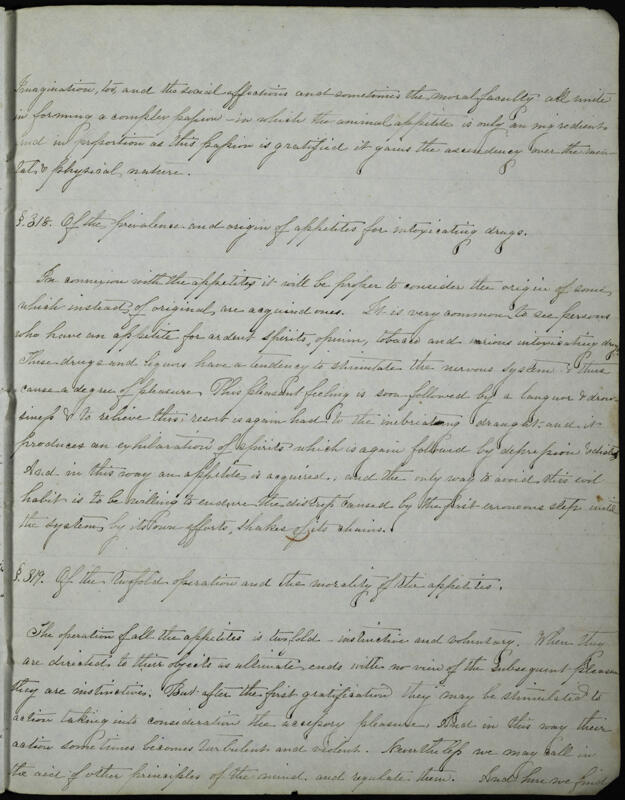 Imagination, too, and the social affections and sometimes the moral faculty all unite
in forming a complex passion – in which the animal appetite is only an ingredient
and in proportion as this passion is gratified it gains the ascendency over the men-
tal & physical nature.
§. 318. Of the prevalence and origin of appetites for intoxicating drugs.
In connexion with the appetites it will be proper to consider the origin of some
which instead of original, are acquired ones. It is very common to see persons
who have an appetite for ardent spirits, opium, tobacco and various intoxicating drugs
These drugs and liquors have a tendency to stimulate the nervous system & thus
cause a degree of pleasure. This pleasant feeling is soon followed by a languor & drow-
siness & to relieve this resort is again had to the inebriating draught – and it
produces an exhilaration of spirits which is again followed by depression &
And in this way an appetite is acquired, and the only way to avoid this evil
habit is to be willing to endure the distress caused by the first erroneous step until
the system, by its own efforts, shakes off its chains.
§. 319. Of the twofold operation and the morality of the appetites.
The operation of all the appetites is twofold – instinctive and voluntary. When they
are directed to their objects as ultimate ends with no view of the subsequent pleasure
they are instinctive. But after the first gratification they may be stimulated to
action taking into consideration the accessory pleasure. And in this way their
action sometimes becomes turbulent and violent. Nevertheless we may call in
the aid of other principles of the mind, and regulate them. And here we find